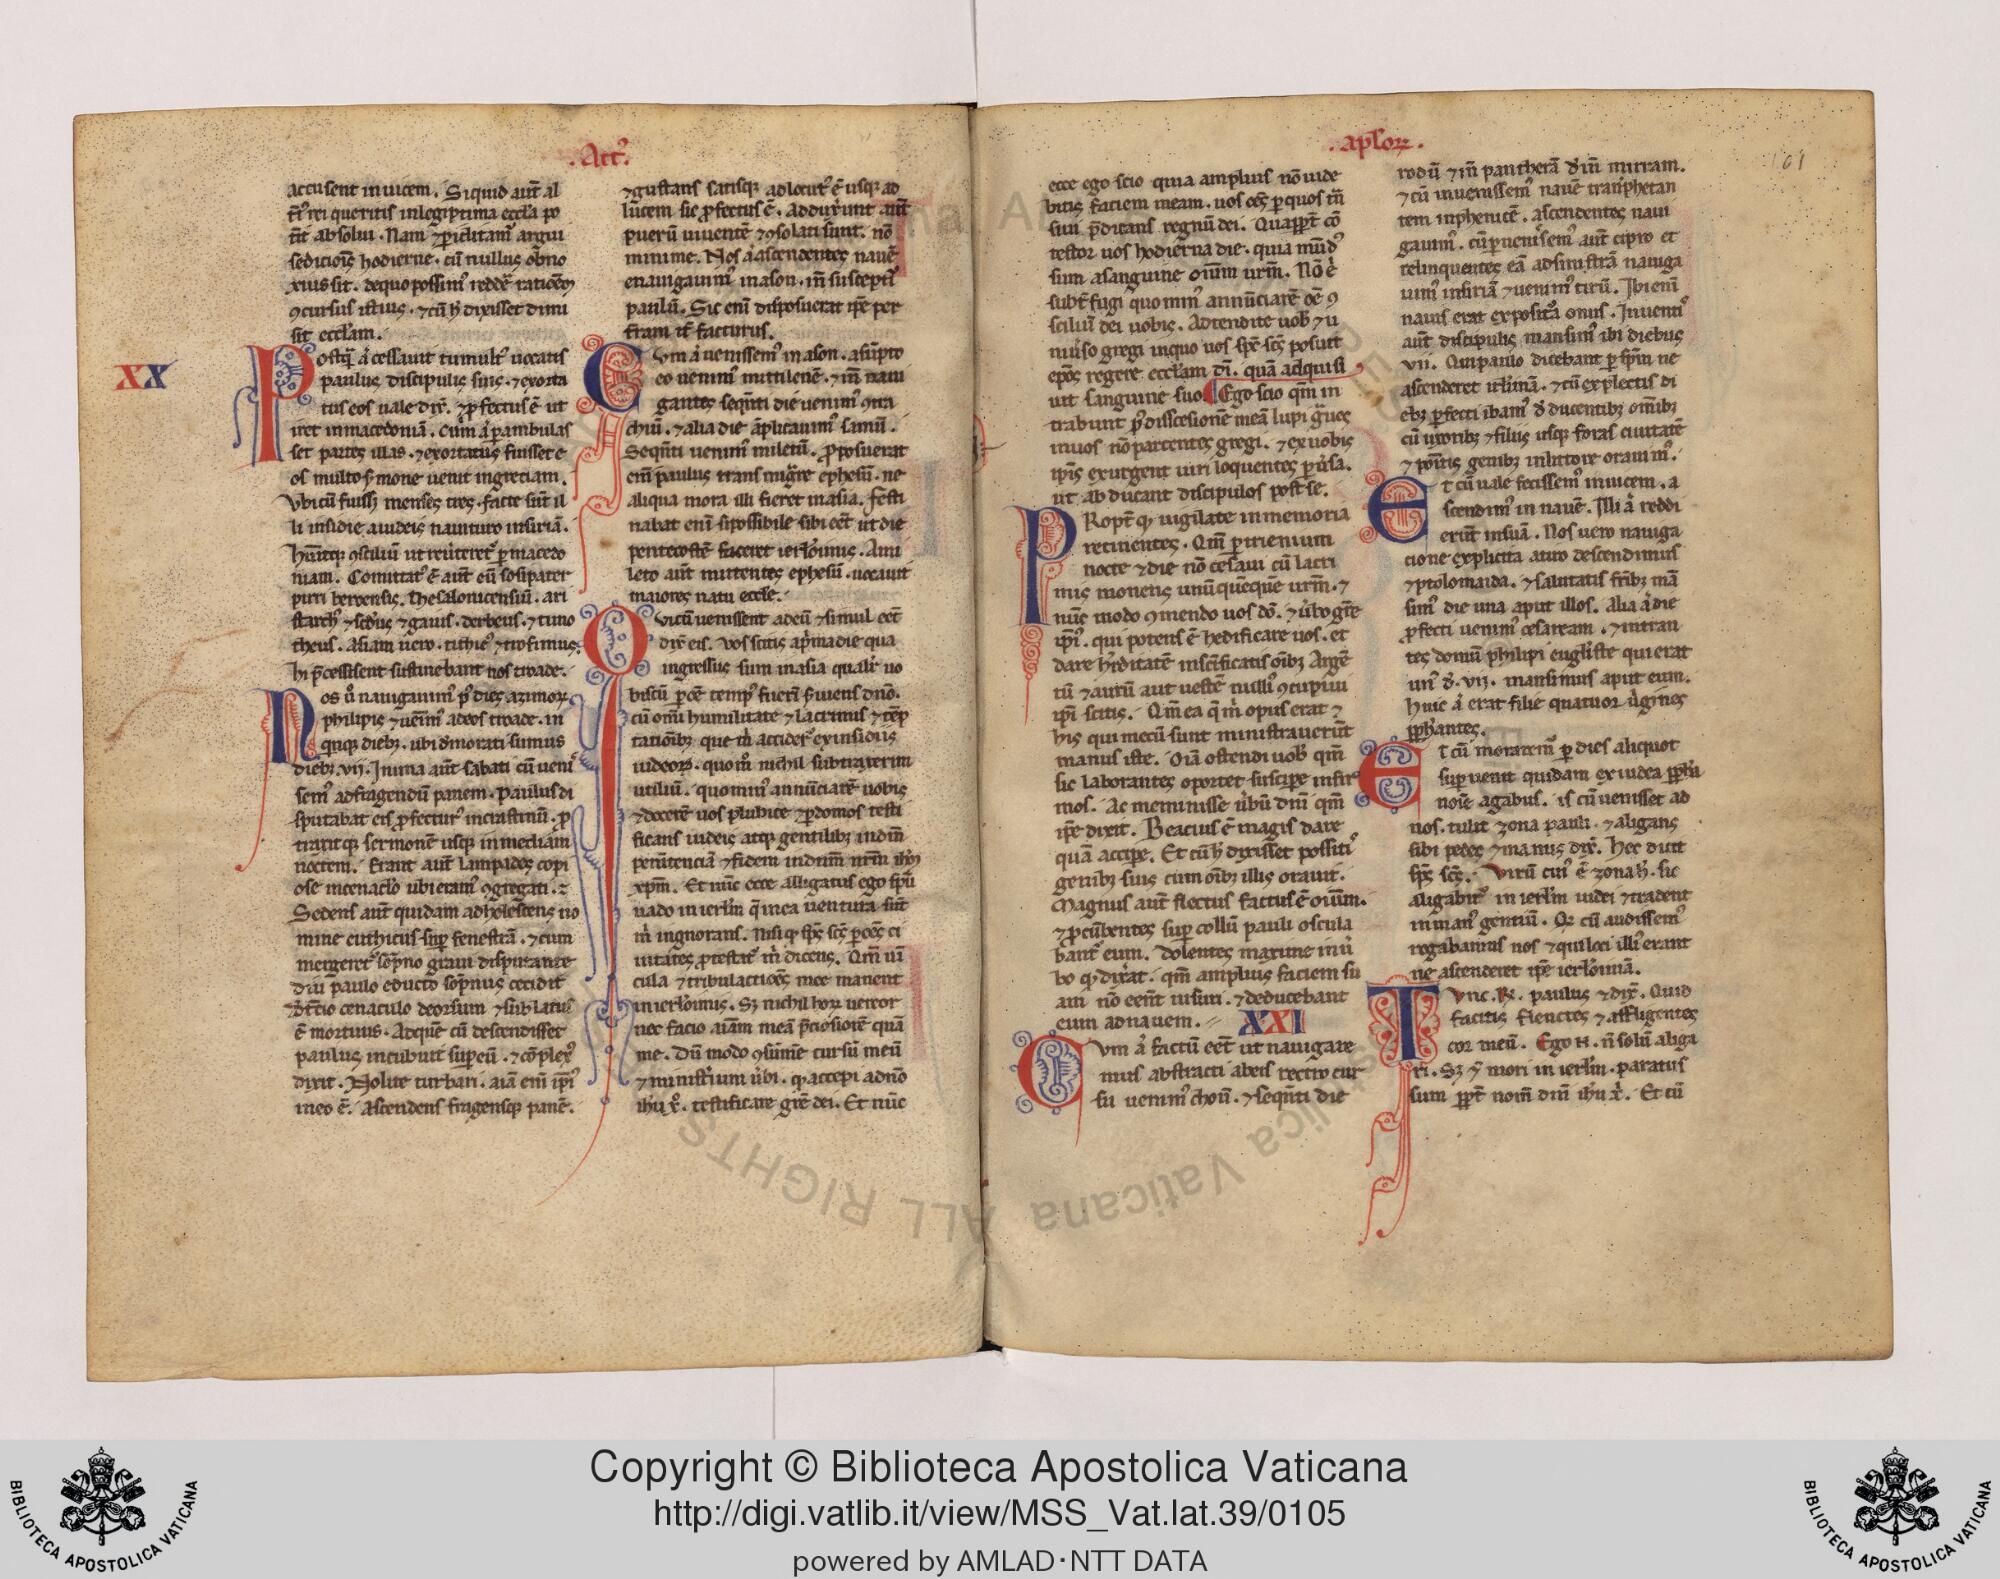 .Act'.
accusent inuicem. Siquid aut̃ al
t̃i' rei queritis inlegiptima eccl̃a po
t̃it absolui. Nam ⁊ꝑiclitam̃ argui
sedicioĩs hodierne. cũ nullus obno
xius sit. dequo possim' reddẽ ratiõẽ
ꝯcursus istius. ⁊cũ h̃ dixisset dimi
sit eccl̃am.
XX
Postq̃ ã cessauit tumult' uocatis
paulus discipulis suis. ⁊exorta
tus eos uale dix̃. ⁊ꝓfectus ẽ ut
iret inmacedoniã. Cum ã ꝑambulas
set partes illas. ⁊exortatus fuisset e
os multo s̃mone uenit ingreciam.
Vbicũ fuiss̃ menses tres. facte sũt il
li insidie aiudeis nauituro insiriã.
niam. Comitat' ẽ aut̃ eũ sosipater
pirri beroensis. thesalonicensiũ. ari
starch' ⁊scd̃us ⁊gaius. derbeus. ⁊timo
theus. Asiani uero. tichic' ⁊trofimus.
hi p̃cessissent sustinebant nos troade.
Nos u' nauigauim' p' dies azimoꝝ
philipis ⁊uẽim' adeos troade. in
qinqꝫ diebꝫ. ubi demorati sumus
diebꝫ. vij. Inuna aut̃ sabati cũ ueni
sem' adfragendũ panem. paulus di
sputabat eis ꝓfectur' incrastinũ. ꝓ
traxitqꝫ sermonẽ usqꝫ inmediam
noctem. Erant aut̃ lampades copi
ose incenac̃lo ubi eram' ꝯgregati. ⁊
Sedens aut̃ quidam adholescens no
mine euthicus sup̃ fenestrã. ⁊cum
mergeret' sõpno graui disputante
diu paulo educto sõpnus cecidit
d̃t̃cio cenaculo deorsum ⁊sublatus
ẽ mortuus. Adquẽ cũ descendisset
paulus incubuit sup̃eũ. ⁊cõplex'
dixit. Nolite turbari. aĩa eni ip̃i'
ineo ẽ. Ascendens fragensqꝫ panẽ.
⁊gustans satisqꝫ adlocut' ẽ usqꝫ ad
lũcem sic ꝓfectus ẽ. Adduxerunt aut̃
puerũ uiuentẽ ⁊ꝯsolati sunt. nõ
minime. Nos ã ascendentes nauẽ
enauigauim' inason. iñ suscepti
paulũ. Sic eni disposuerat ip̃e per
terram it̃ facturus.
Cum ã uenissem' inason. asũpto
eo uenim' mittilenẽ. ⁊iñ naui
gantes seqñti die uenim' ꝯtra
chiũ. ⁊alia die aplicauim' samũ.
Seqñti uenim' miletũ. ꝓposuerat
eni paulus trans migrẽ ephesũ. ne
aliqua mora illi fieret inasia. festi
nabat eni sipossibile sibi eẽt ut die
pentecostẽ faceret ierl̃onimis. Ami
leto aut̃ mittentes ephesũ. uocauit
maiores natu eccl̃e.
Qvicũ uenissent adeũ ⁊simul eẽt
dix̃ eis. Vos scitis ap̃ma die qua
ingressus sum inasia qualit̃ uo
biscũ ꝑ oẽ temp' fueri s̃uiens dño.
cũ omi humilitate ⁊lacrimis ⁊tẽp
tationibꝫ que m̃ accider̃ exinsidiis
iudeoꝝ. quom̃ nichil subtraxerim
utiliũ. quomin' annũciarẽ uobis
⁊docerẽ uos publice ⁊ꝑ domos testi
ficans iudeis atqꝫ gentilibꝫ indm̃
penitenciã ⁊fidem indnm̃ nrm̃ ihm̃
xp̃m. Et nũc ecce alligatus ego sp̃u
uado in ierl̃m q̃ inea uentura sũt
m̃ ingnorans. Nisi qꝫ sp̃s sc̃s ꝑ oẽs ci
uitates ꝓtestat' m̃ dicens. Qm̃ ui
cula ⁊tribulaciões mee manent
inierl̃onimis. Sꝫ nichil hoꝝ uereor
nec facio aĩam meã p̃ciosiorẽ quã
me. Dũ modo ꝯsũmẽ cursũ meũ
⁊ministr̃ium u'bi. qꝫ accepi adño
ihu x'. testificare gr̃e dei. Et nũc
.apl̃oꝝ.
101
ecce ego scio quia amplius nõ uide
bitis faciem meam. uos oẽs ꝑ quos t̃ñ
siui p̃dicans regnũ dei. Quapp̃t cõ
testor uos hodierna die. quia mũd'
sum asanguine oium urm̃. Nõ ẽ
subt̃fugi quomin' annũciarẽ oẽ ꝯ
siliũ dei uobis. Adtendite uobꝫ ⁊u
niu'so gregi inquo uos sp̃s sc̃s posuit
epõs regere eccl̃am di. quã adquisi
uit sanguine suo. Ego scio qm̃ in
trabunt p' discesionẽ meã lupi g̃ues
inuos nõ parcentes gregi. ⁊ex uobis
ip̃is exurgent uiri loquentes ꝑu'sa.
ut abducant discipulos post se.
Propt̃ qꝫ uigilate inmemoria
retinentes. Qm̃ ꝑ trienium
nocte ⁊die nõ cessaui cũ lacri
mis monens unũquẽque urm̃. ⁊
nũc modo ꝯmendo uos dõ. ⁊u'bo gr̃e
ip̃i'. qui potens ẽ hedificare uos. et
dare h'editatẽ insc̃ificatis oibꝫ Argẽ
tũ ⁊aurũ aut uestẽ nulli' ꝯcupiui
ip̃i scitis. Qm̃ ea q̃ m̃ opus erat ⁊
his qui mecũ sunt ministrauerũt
manus iste. Oiã ostendi uobꝫ qm̃
sic laborantes oportet suscipe infir
mos. Ac meminisse u'bũ dni qm̃
ip̃e dixit. Beacius ẽ magis dare
quã accipe. Et cũ h̃ dixisset positi'
genibꝫ suis cum oibꝫ illis orauit.
Magnus aut̃ flectus factus ẽ oium.
⁊ꝓcũbentes sup̃ collũ pauli oscula
bant' eum. dolentes maxime inu'
bo qꝫ dixerat. qm̃ amplius faciem su
am nõ eẽnt uisuri. ⁊deducebant
eum adnauem.
XXI
Cum ã factũ eẽt ut nauigare
mus abstracti abeis recto cur
su uenim' choũ. ⁊seqñti die
rodũ ⁊iñ pantherã deiñ mirram.
⁊cũ inuenissem' nauẽ transphetan
tem inphenicẽ. ascendentes naui
gauim'. cũ ꝑuenissem' aut̃ cipro et
relinquentes eã adsinistrã nauiga
uim' insiriã ⁊uenim' tirũ. Ibi eni
nauis erat exposit̃a onus. Inuenti'
aut̃ discipulis mansim' ibi diebus
vii. Qui paulo dicebant ꝑ sp̃m ne
ascenderet ierl̃imã. ⁊cũ explectis di
ebꝫ ꝓfecti ibam' deducentibꝫ om̃ibꝫ
cũ uxoribꝫ ⁊filiis usqꝫ foras ciuitatẽ
⁊poĩtis genibꝫ inlittore orauim'.
Et cũ uale fecissem' inuicem. a
scendim' in nauẽ. Illi ã reddi
erũt insuã. Nos uero nauiga
cione explicita atiro descendimus
⁊ptolomaida. ⁊salutatis fr̃ibꝫ mã
sim' die una aput illos. Alia ã die
ꝓfecti uenim' cesaream. ⁊intran
tes domũ philipi eugl̃iste qui erat
un' de. vij. mansimus aput eum.
huic ã erat filie quatuor u'gines
ꝓph̃antes.
Et cũ moraremur ꝑ dies aliquot
sup̃uenit quidam ex iudea ꝓph̃a
noiẽ agabus. is cũ uenisset ad
nos. tulit zona pauli. ⁊aligans
sibi pedes ⁊manus dix̃. Hec dicit
sp̃s sc̃s. Virũ cui' ẽ zona h̃. sic
aligabũt in ierl̃m iudei ⁊tradent
inman' gentiũ. Qꝫ cũ audissem'
rogabamus nos ⁊qui loci illi' erant
ne ascenderet ip̃e ierl̃onimã.
Tunc. R̃. paulus ⁊dix̃. Quid
facitis flenctes ⁊affligentes
cor meũ. Ego H. ñ solũ aliga
ri. Sꝫ ⁊ mori in ierl̃m. paratus
sum ꝓpt̃ nom̃ dni ihu x̃. Et cũ
Copyright © Biblioteca Apostolica Vaticana
http://digi.vatlib.it/view/MSS_Vat.lat.39/0105
powered by AMLAD·NTT DATA
BIBLIOTECA APOSTOLICA VATICANA
BIBLIOTECA APOSTOLICA VATICANA